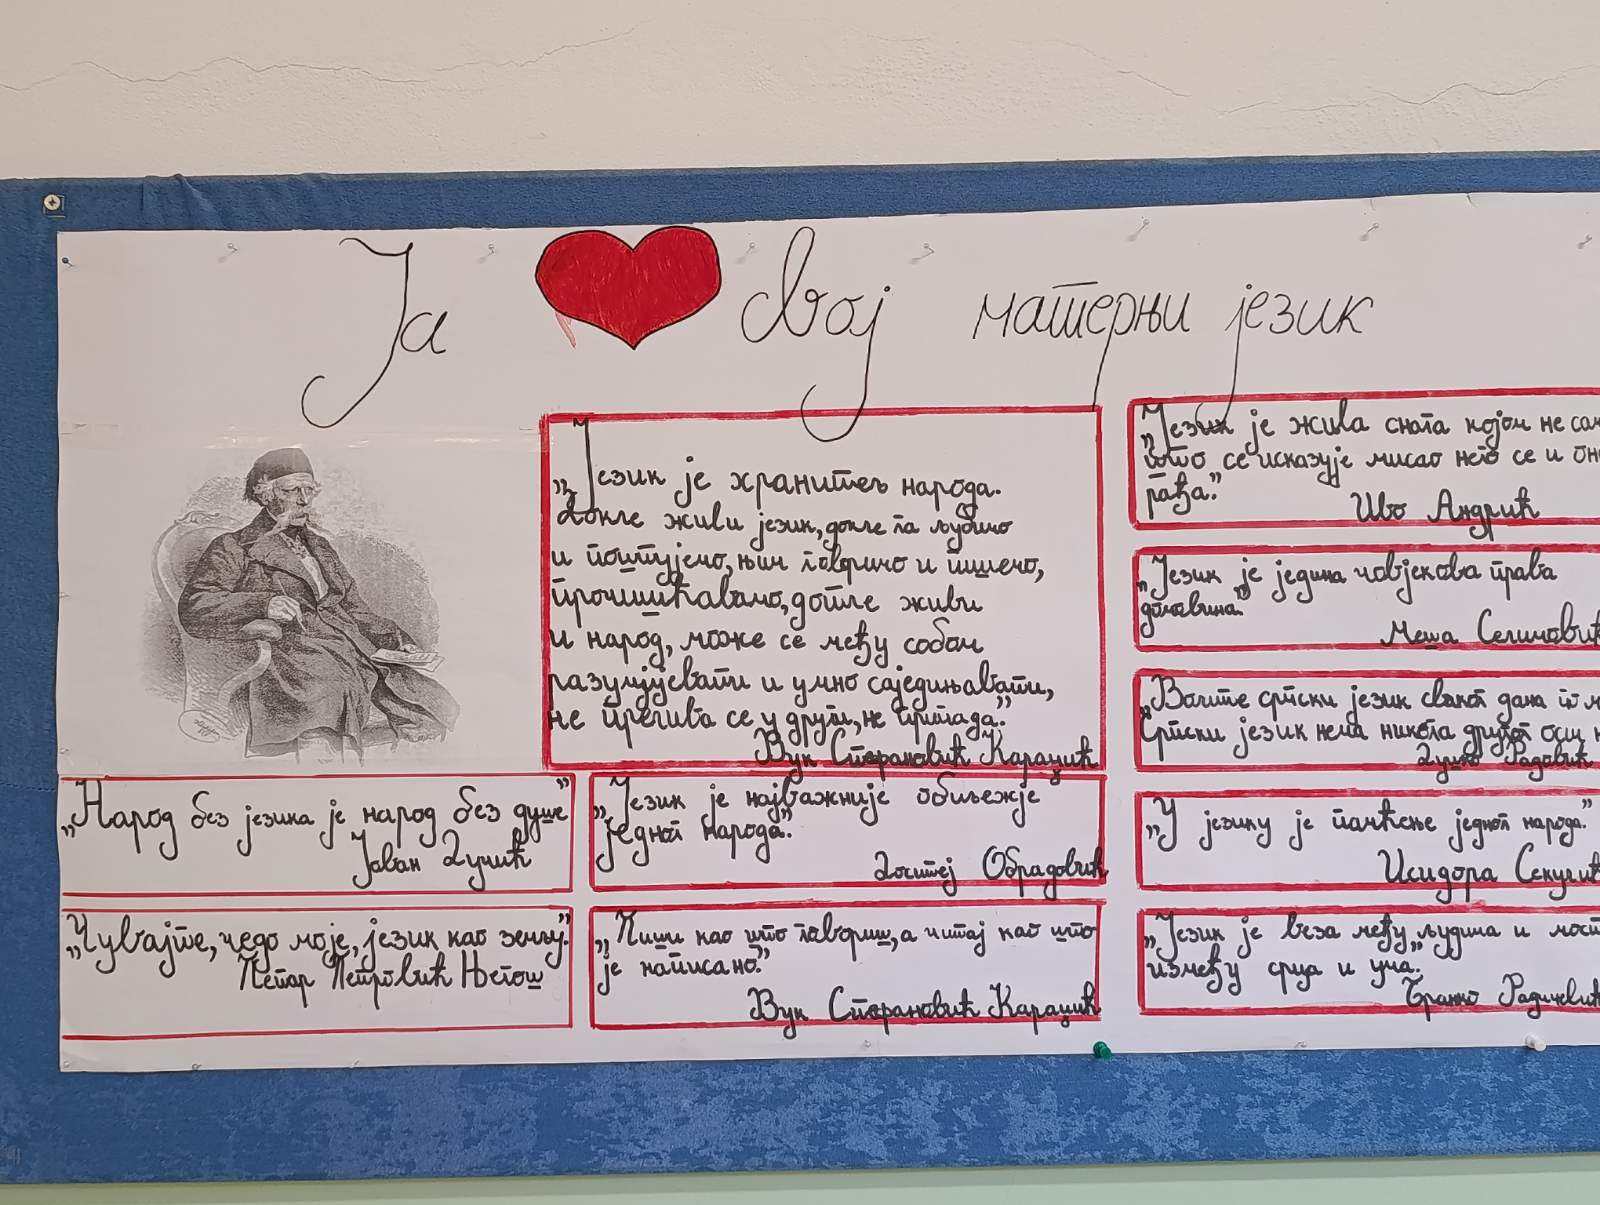 Ја свој матерњи језик
„Језик је хранитељ народа.
Докле живи језик, докле га љубимо
и поштујемо, њим говоримо и пишемо,
прочишћавамо, дотле живи
и народ, може се међу собом
разумјевати и умно саједињавати,
не прелива се у други, не припада.”
Вук Стефановић Караџић
„Народ без језика је народ без душе”
Јован Дучић
„Чувајте, чедо моје, језик као земљу.”
Петар Петровић Његош
„Језик је најважније обиљежје
једног народа.”
Доситеј Обрадовић
„Пиши као што говориш, а читај као што
је написано.”
Вук Стефановић Караџић
„Језик је жива снага којом не
што се исказује мисао него се и
рађа.”
Иво Андрић
„Језик је једина човјекова права
домовина”
Меша Селимовић
„Волите српски језик сваког дана
Српски језик нема никога другог осим
Душко Радовић
„У језику је памћење једног народа.”
Исидора Секулић
„Језик је веза међу људима и мост
између срца и ума.”
Бранко Радичевић